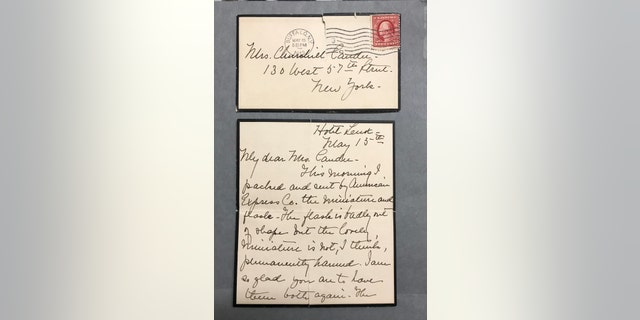 BUFFALO, N.Y.
MAY 15
Mrs. Churchill Candee,
130 West 57th Street.
New York-
Hotel Lenox-
May 15th
My dear Mrs. Candee-
This morning I
packed and sent by American
Express Co. the miniature and
flask- The flask is badly out
of shape but the lovely
miniature is not, I think,
permanently harmed. I am
so glad you are to have
them both again. The